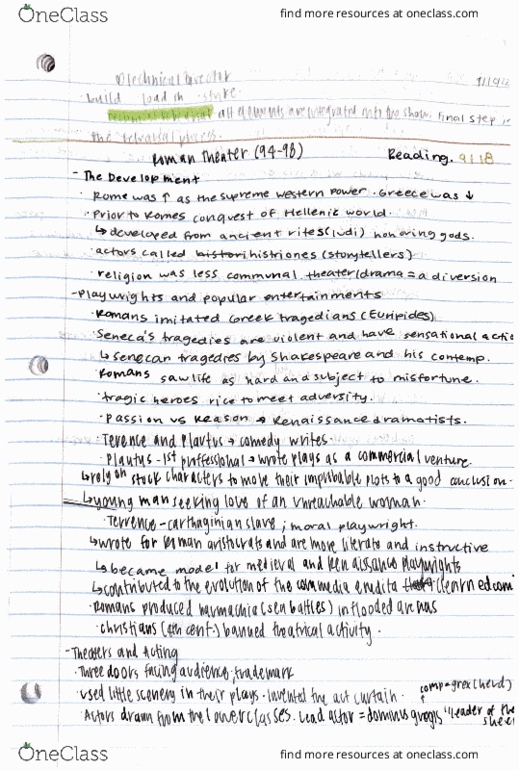 OneClass
find more resources at oneclass.com
Technical Director
build load in strike
all elements are integrated into the show. final step in
the rehearsal process.
Roman Theater (94-98) Reading. 9.18
- The Development
· Rome was ↑ as the supreme western power. Greece was ↓
· Prior to Romes conquest of Hellenic world.
↳ developed from ancient rites (ludi) honoring gods.
· actors called histori histriones (storytellers)
· religion was less communal. theater/drama = a diversion
- Playwrights and popular entertainments
· Romans imitated Greek tragedians (Euripides)
· Seneca's tragedies are violent and have sensational actio
↳ senecan tragedies by Shakespeare and his contemp.
· Romans saw life as hard and subject to misfortune.
· tragic heroes rice to meet adversity.
· Passion vs Reason → Renaissance dramatists.
· Terence and Plautus → comedy writes.
· Plautus - 1st professional → wrote plays as a commercial venture.
↳ rely on stock characters to move their improbable plots to a good conclusion.
↳ young man seeking love of an unreachable woman.
· Terrence - carthaginian slave; moral playwright.
↳ wrote for Roman aristocrats and are more literate and instructive
↳ became model for medieval and Renaissance playwrights
↳ contributed to the evolution of the commedia erudita (learned com
· Romans produced naumachia (sea battles) in flooded arenas
· christians (4th cent.) banned theatrical activity.
- Theaters and Acting
· Three doors facing audience; trademark
· used little scenery in their plays. invented the act curtain.
comp = grex (herd)
· Actors drawn from the lower classes. Lead actor = dominus gregis "leader of the
OneClass
find more resources at oneclass.com